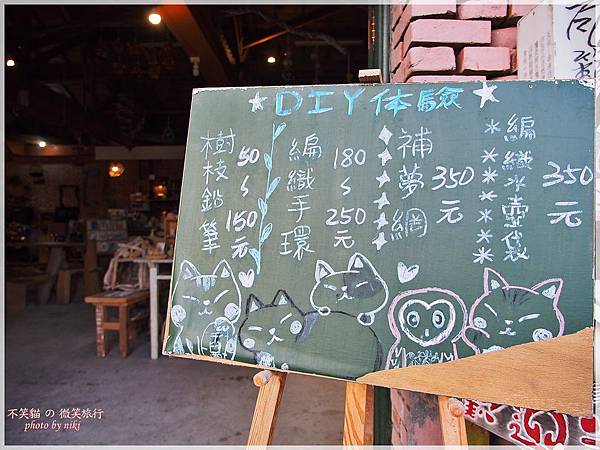 DIY体驗
樹枝鉛筆
50
~
150元
編織手環
180
~
250元
補夢網
350元
編織水壺袋
350元
不笑貓 の 微笑旅行
photo by niki